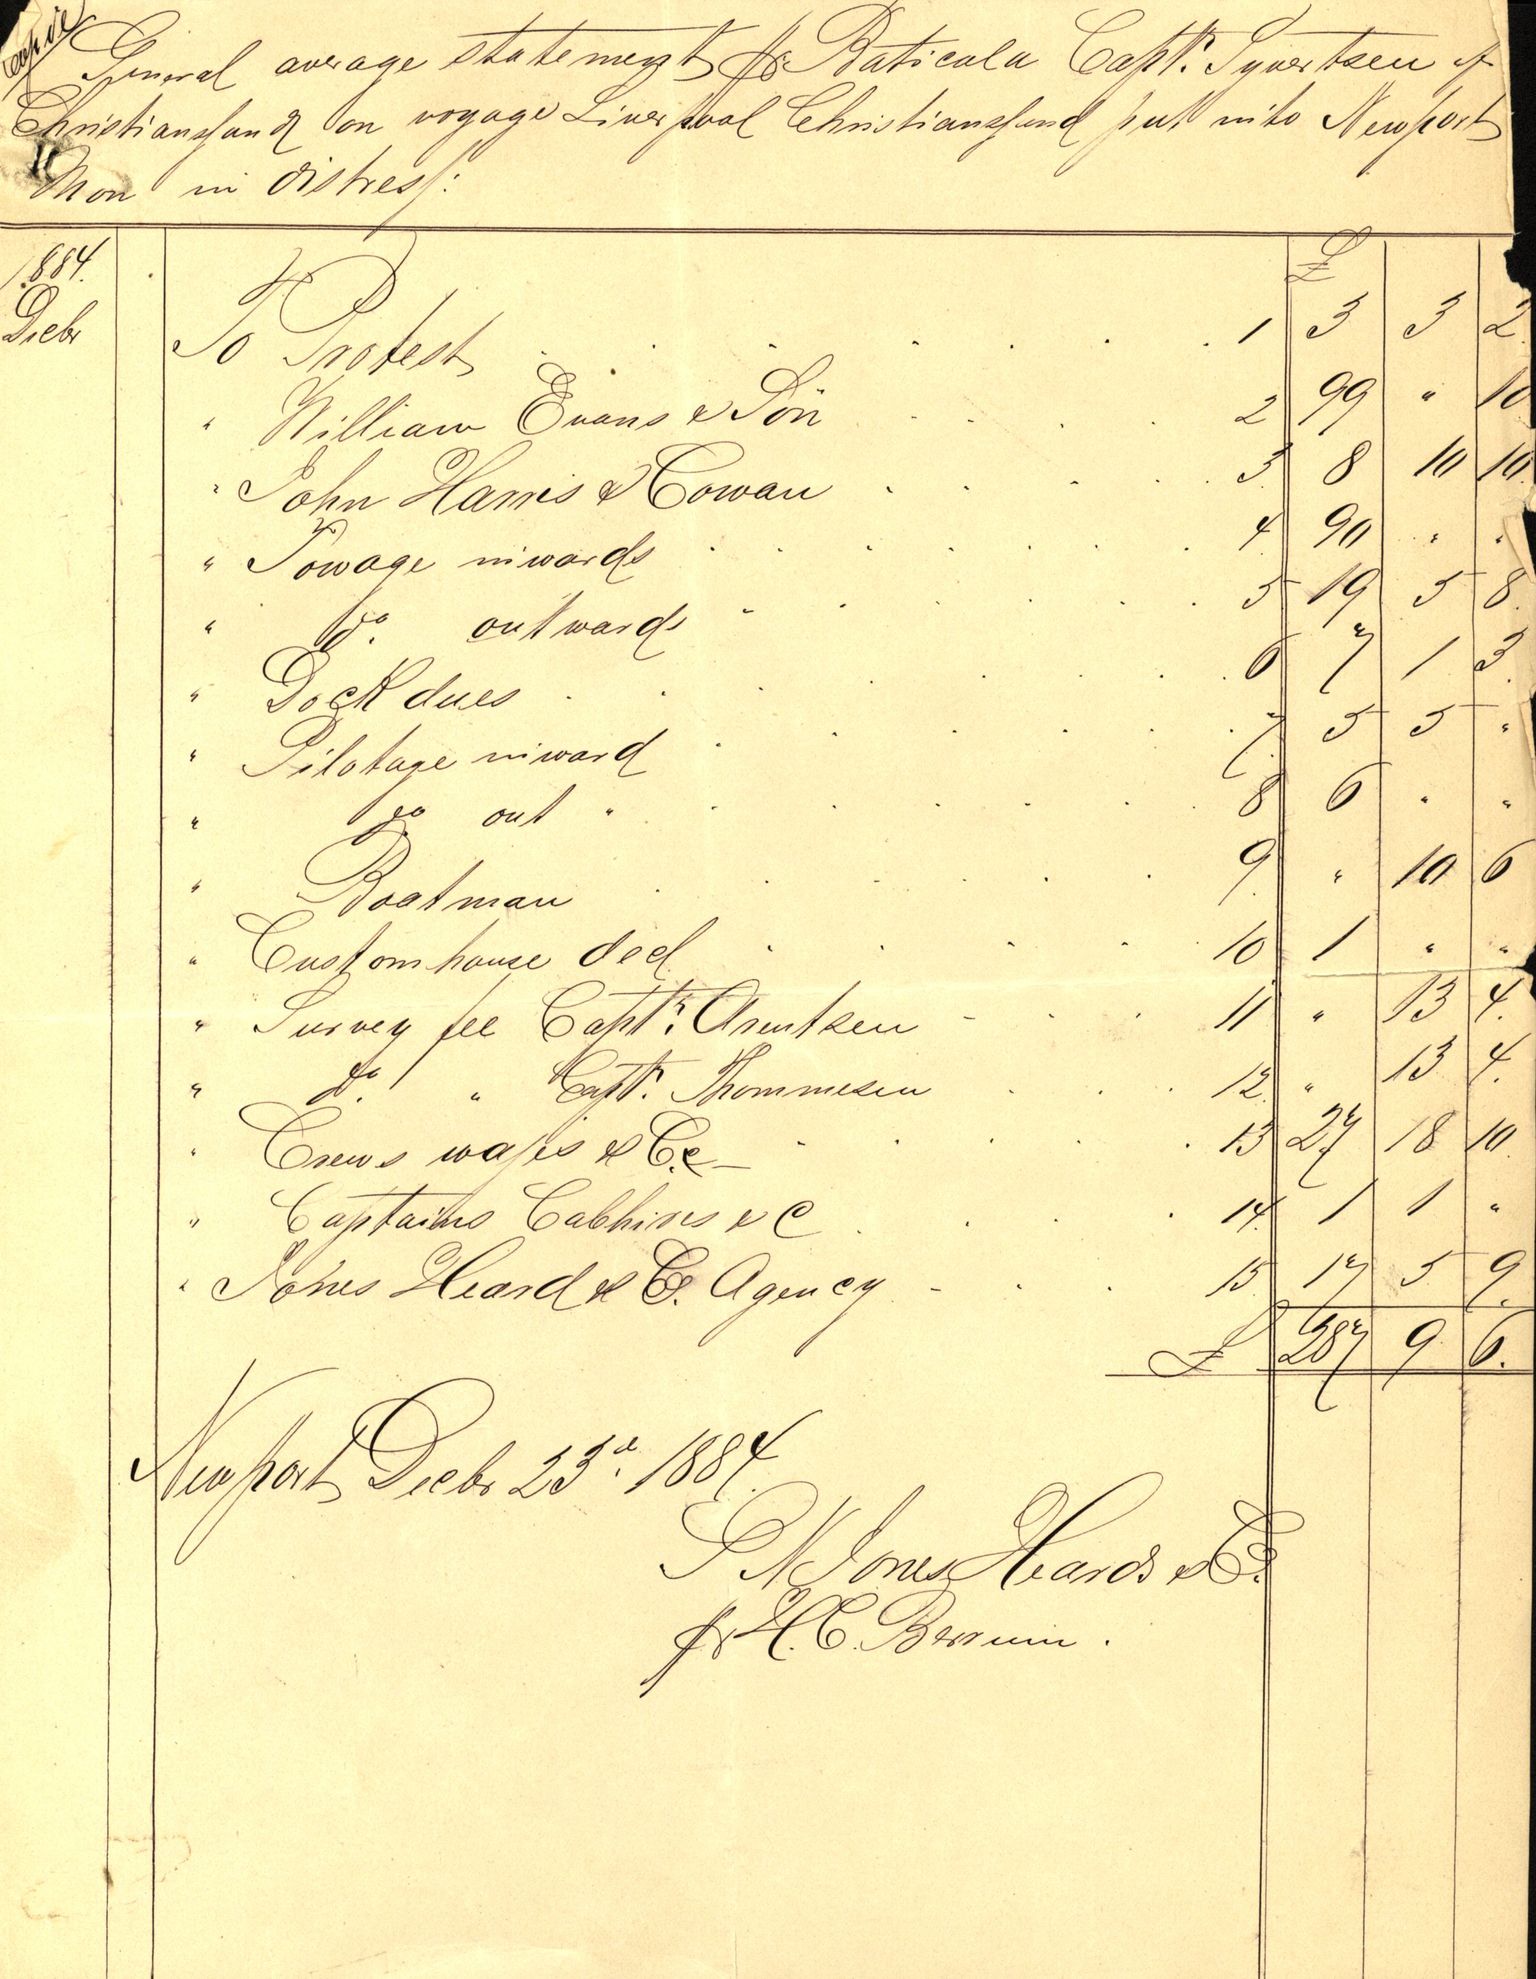 Copie
General average statement fr Baticola Captn. Syvertsen of
Christianssund on voyage Liverpool Christianssund put into Newport
Mon in distress:
1884. £
Decbr To Protest 1 3 3 2
" William Evans & Son 2 99 " 10
" John Harris & Cowan 3 8 10 10
" Towage inwards 4 90 " "
" do. outwards 5 19 5 8
" Dock dues 6 7 1 3
" Pilotage inward 7 5 5 "
" do out " 8 6 " "
" Boatman 9 " 10 6
" Customhouse ded 10 1 " "
" Survey fee Captn. Arentzen 11 " 13 4
" do. " Captn. Thommesen 12 " 13 4
" Crews wages & C. 13 27 18 10
" Captains Cabhires & C 14 1 1 "
" Jones Heard & Co. Agency 15 17 5 9
£ 287 9 6.
Newport Decbr 23d. 1884
P N Jones Heard & Co.
fr H. C.